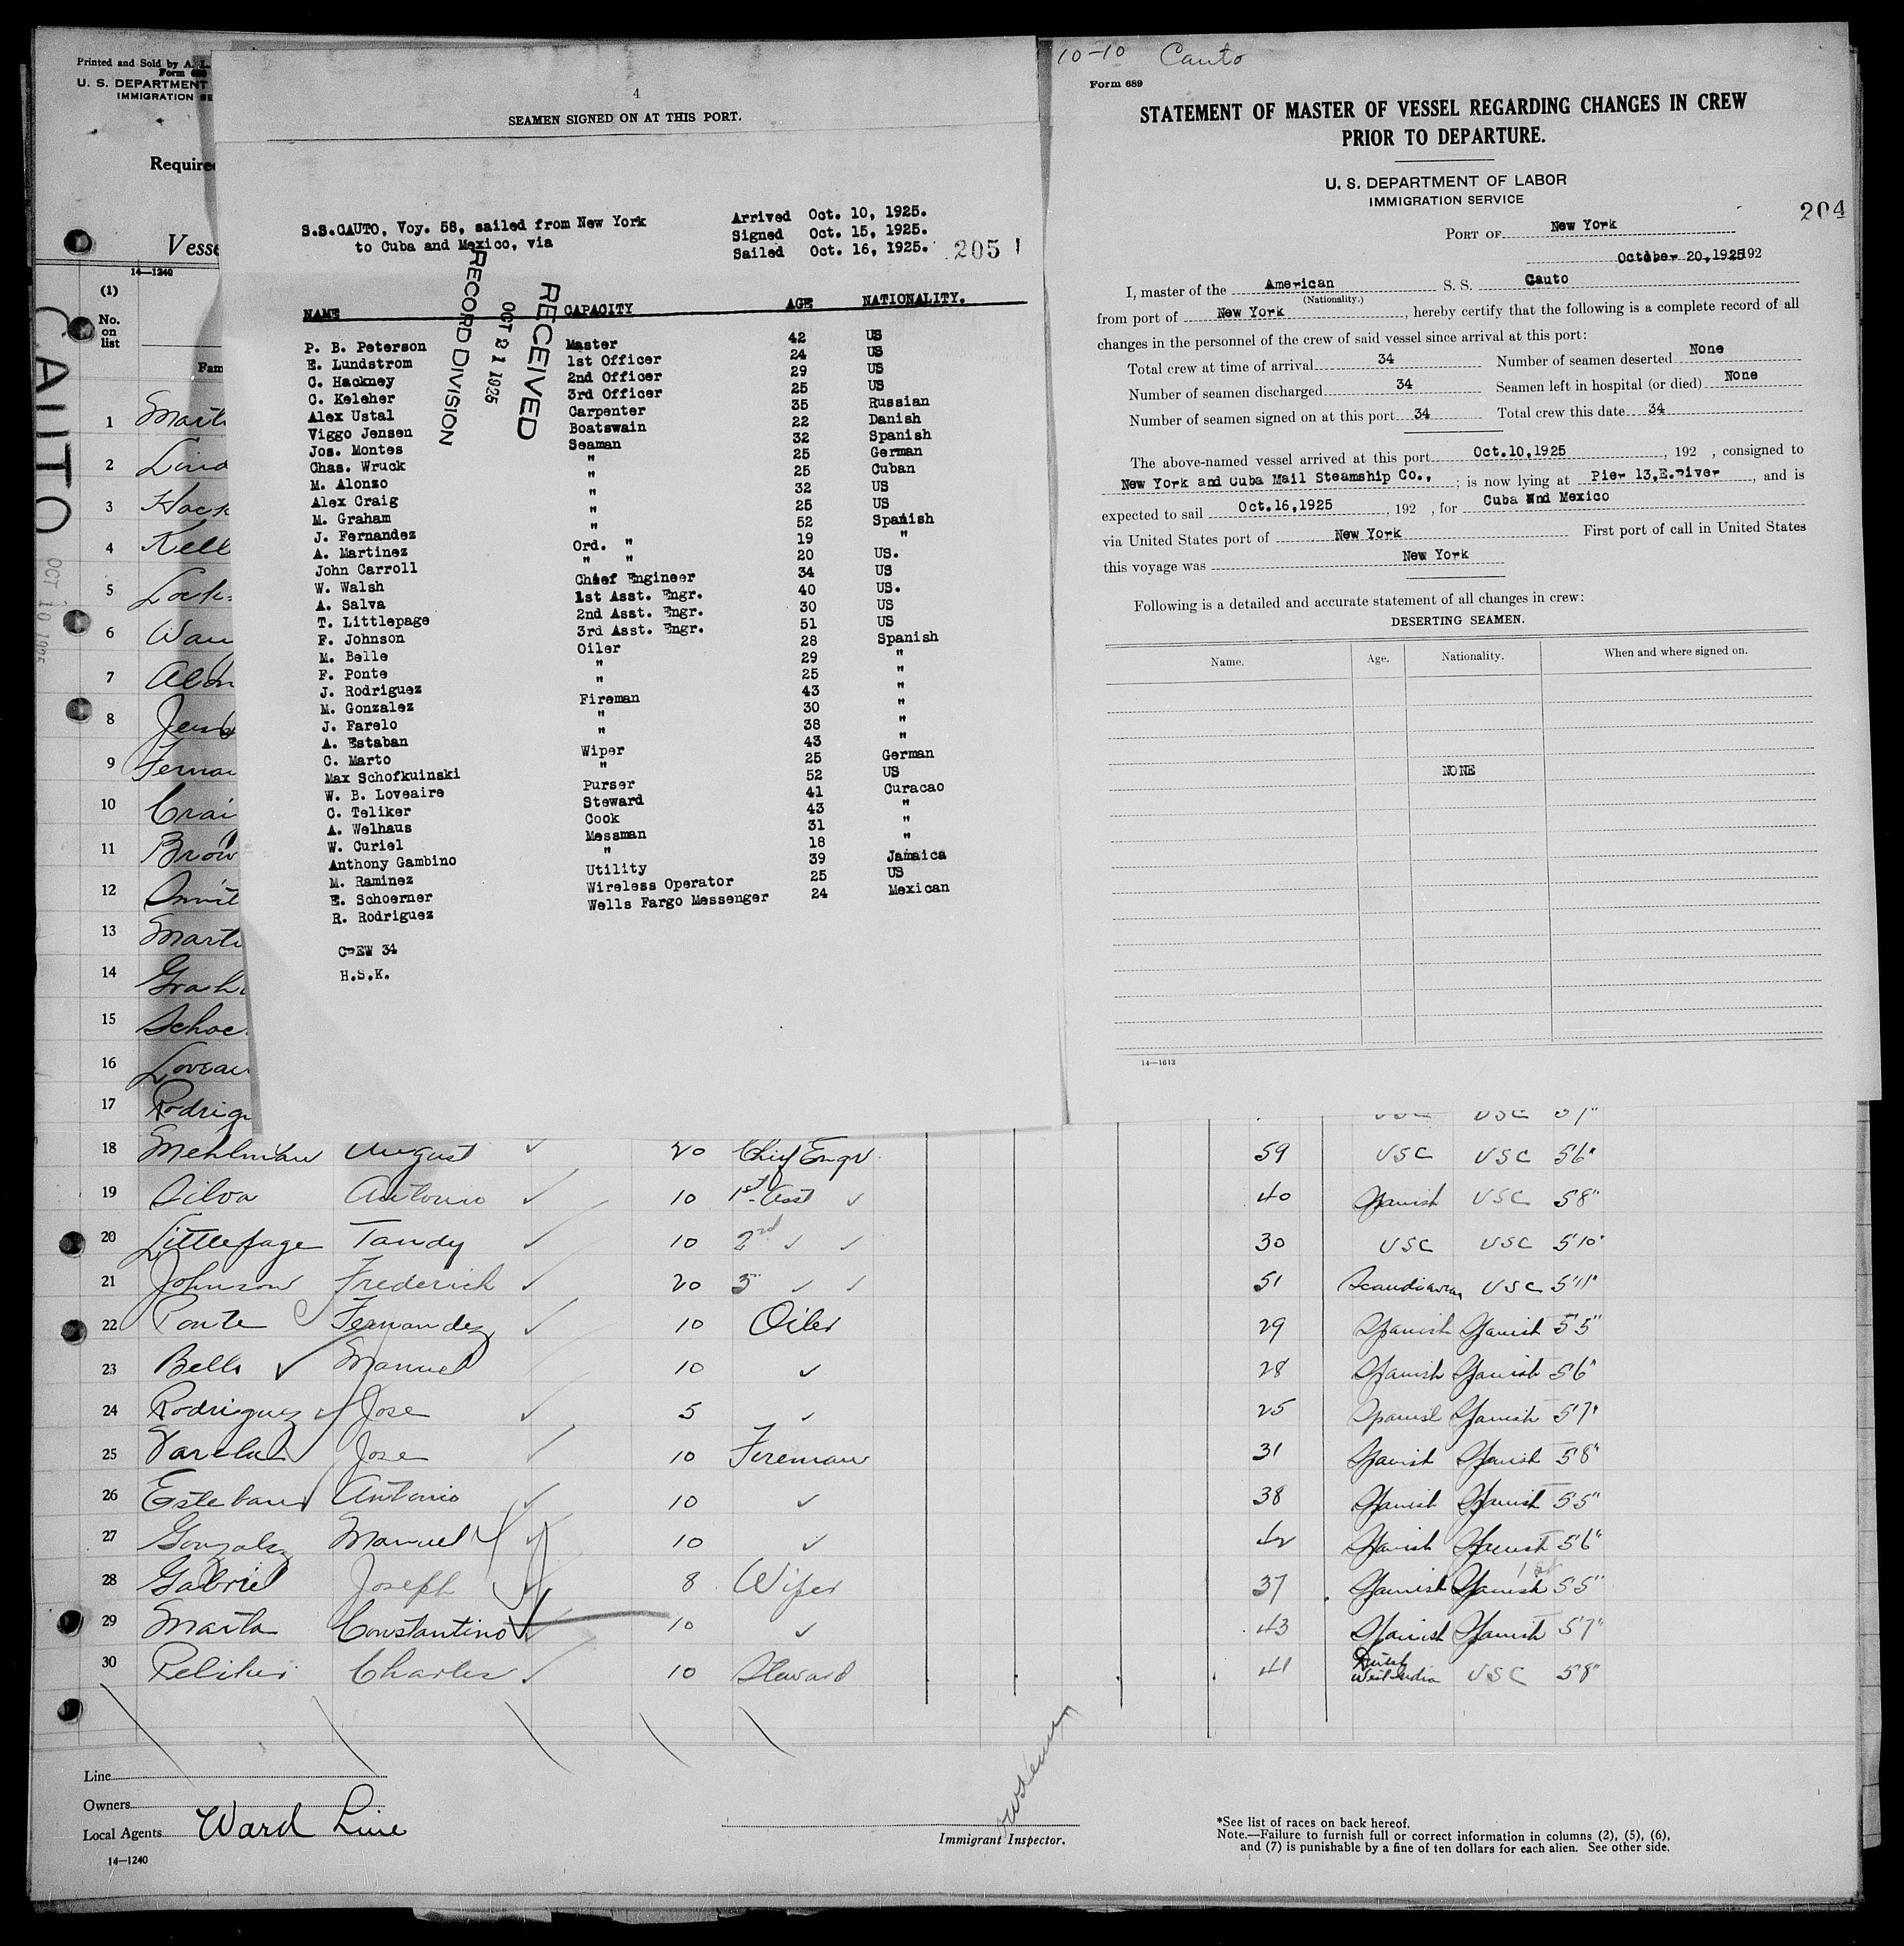 Printed and Sold by A. L.
Form 689
U. S. DEPARTMENT
IMMIGRATION SE
Required
Vesse
14—1240
(1)
No.
on
list
Fam
CAUTO
OCT 10 1925
4
SEAMEN SIGNED ON AT THIS PORT.
S.S.CAUTO, Voy. 58, sailed from New York
to Cuba and Mexico, via
Arrived Oct. 10, 1925.
Signed Oct. 15, 1925.
Sailed Oct. 16, 1925.
205
RECEIVED
OCT 21 1925
RECORD DIVISION
NAME CAPACITY AGE NATIONALITY.
P. B. Peterson Master 42 US
E. Lundstrom 1st Officer 24 US
C. Hackney 2nd Officer 29 US
C. Keleher 3rd Officer 25 US
Alex Ustal Carpenter 35 Russian
Viggo Jensen Boatswain 22 Danish
Jos. Montes Seaman 32 Spanish
Chas. Wruck " 25 German
M. Alonzo " 25 Cuban
Alex Craig " 32 US
M. Graham " 25 US
J. Fernandez " 52 Spanish
A. Martinez Ord. " 19 "
John Carroll " " 20 US.
W. Walsh Chief Engineer 34 US
A. Salva 1st Asst. Engr. 40 US.
T. Littlepage 2nd Asst. Engr. 30 US
F. Johnson 3rd Asst. Engr. 51 US
M. Belle Oiler 28 Spanish
F. Ponte " 29 "
J. Rodriguez " 25 "
M. Gonzalez Fireman 43 "
J. Farelo " 30 "
A. Estaban " 38 "
C. Marto Wiper 43 "
Max Schofkuinski " 25 German
W. B. Loveaire Purser 52 US
C. Teliker Steward 41 Curacao
A. Welhaus Cook 43 "
W. Curiel Messman 31 "
Anthony Gambino " 18 "
M. Raminez Utility 39 Jamaica
E. Schoerner Wireless Operator 25 US
R. Rodriguez Wells Fargo Messenger 24 Mexican
CREW 34
H.S.K.
10-10 Cauto
Form 689
STATEMENT OF MASTER OF VESSEL REGARDING CHANGES IN CREW
PRIOR TO DEPARTURE.
U. S. DEPARTMENT OF LABOR
IMMIGRATION SERVICE
204
PORT OF New York
October 20,1925 192
I, master of the American S. S. Cauto
(Nationality.)
from port of New York, hereby certify that the following is a complete record of all
changes in the personnel of the crew of said vessel since arrival at this port:
Total crew at time of arrival 34 Number of seamen deserted None
Number of seamen discharged 34 Seamen left in hospital (or died) None
Number of seamen signed on at this port 34 Total crew this date 34
The above-named vessel arrived at this port Oct.10,1925, 192 , consigned to
New York and Cuba Mail Steamship Co., ; is now lying at Pier 13,E.River, and is
expected to sail Oct.16,1925, 192 , for Cuba and Mexico
via United States port of New York First port of call in United States
this voyage was New York
Following is a detailed and accurate statement of all changes in crew:
DESERTING SEAMEN.
Name. Age. Nationality. When and where signed on.
NONE
14—1613
1 Marti
2 Lind
3 Hack
4 Kell
5
6
7 Alon
8 Jens
9 Fernan
10 Crai
11 Brow
12
13 Marti
14 Grah
15 Schoe
16 Loveai
17 Rodrigu
18 Mehlman August 20 Chief Engr. 59 USC USC 5'6"
19 Silva Antonio 10 1st Asst 40 Spanish USC 5'8"
20 Littlepage Tandy 10 2nd 30 USC USC 5'10"
21 Johnson Frederick 20 3" 51 Scandinavian USC 5'11"
22 Ponte Fernandez 10 Oiler 29 Spanish Spanish 5'5"
23 Bello Manuel 10 28 Spanish Spanish 5'6"
24 Rodriguez Jose 5 25 Spanish Spanish 5'7"
25 Varela Jose 10 Fireman 31 Spanish Spanish 5'8"
26 Esteban Antonio 10 38 Spanish Spanish 5'5"
27 Gonzalez Manuel 10 42 Spanish Spanish 5'6"
28 Gabriel Joseph 8 Wiper 37 Spanish Spanish 5'5"
29 Marta Constantino 10 43 Spanish Spanish 5'7"
30 Charles 10 Steward 41 Dutch West India USC 5'8"
Line
Owners
Local Agents Ward Line
14—1240
Immigrant Inspector.
*See list of races on back hereof.
Note.—Failure to furnish full or correct information in columns (2), (5), (6),
and (7) is punishable by a fine of ten dollars for each alien. See other side.